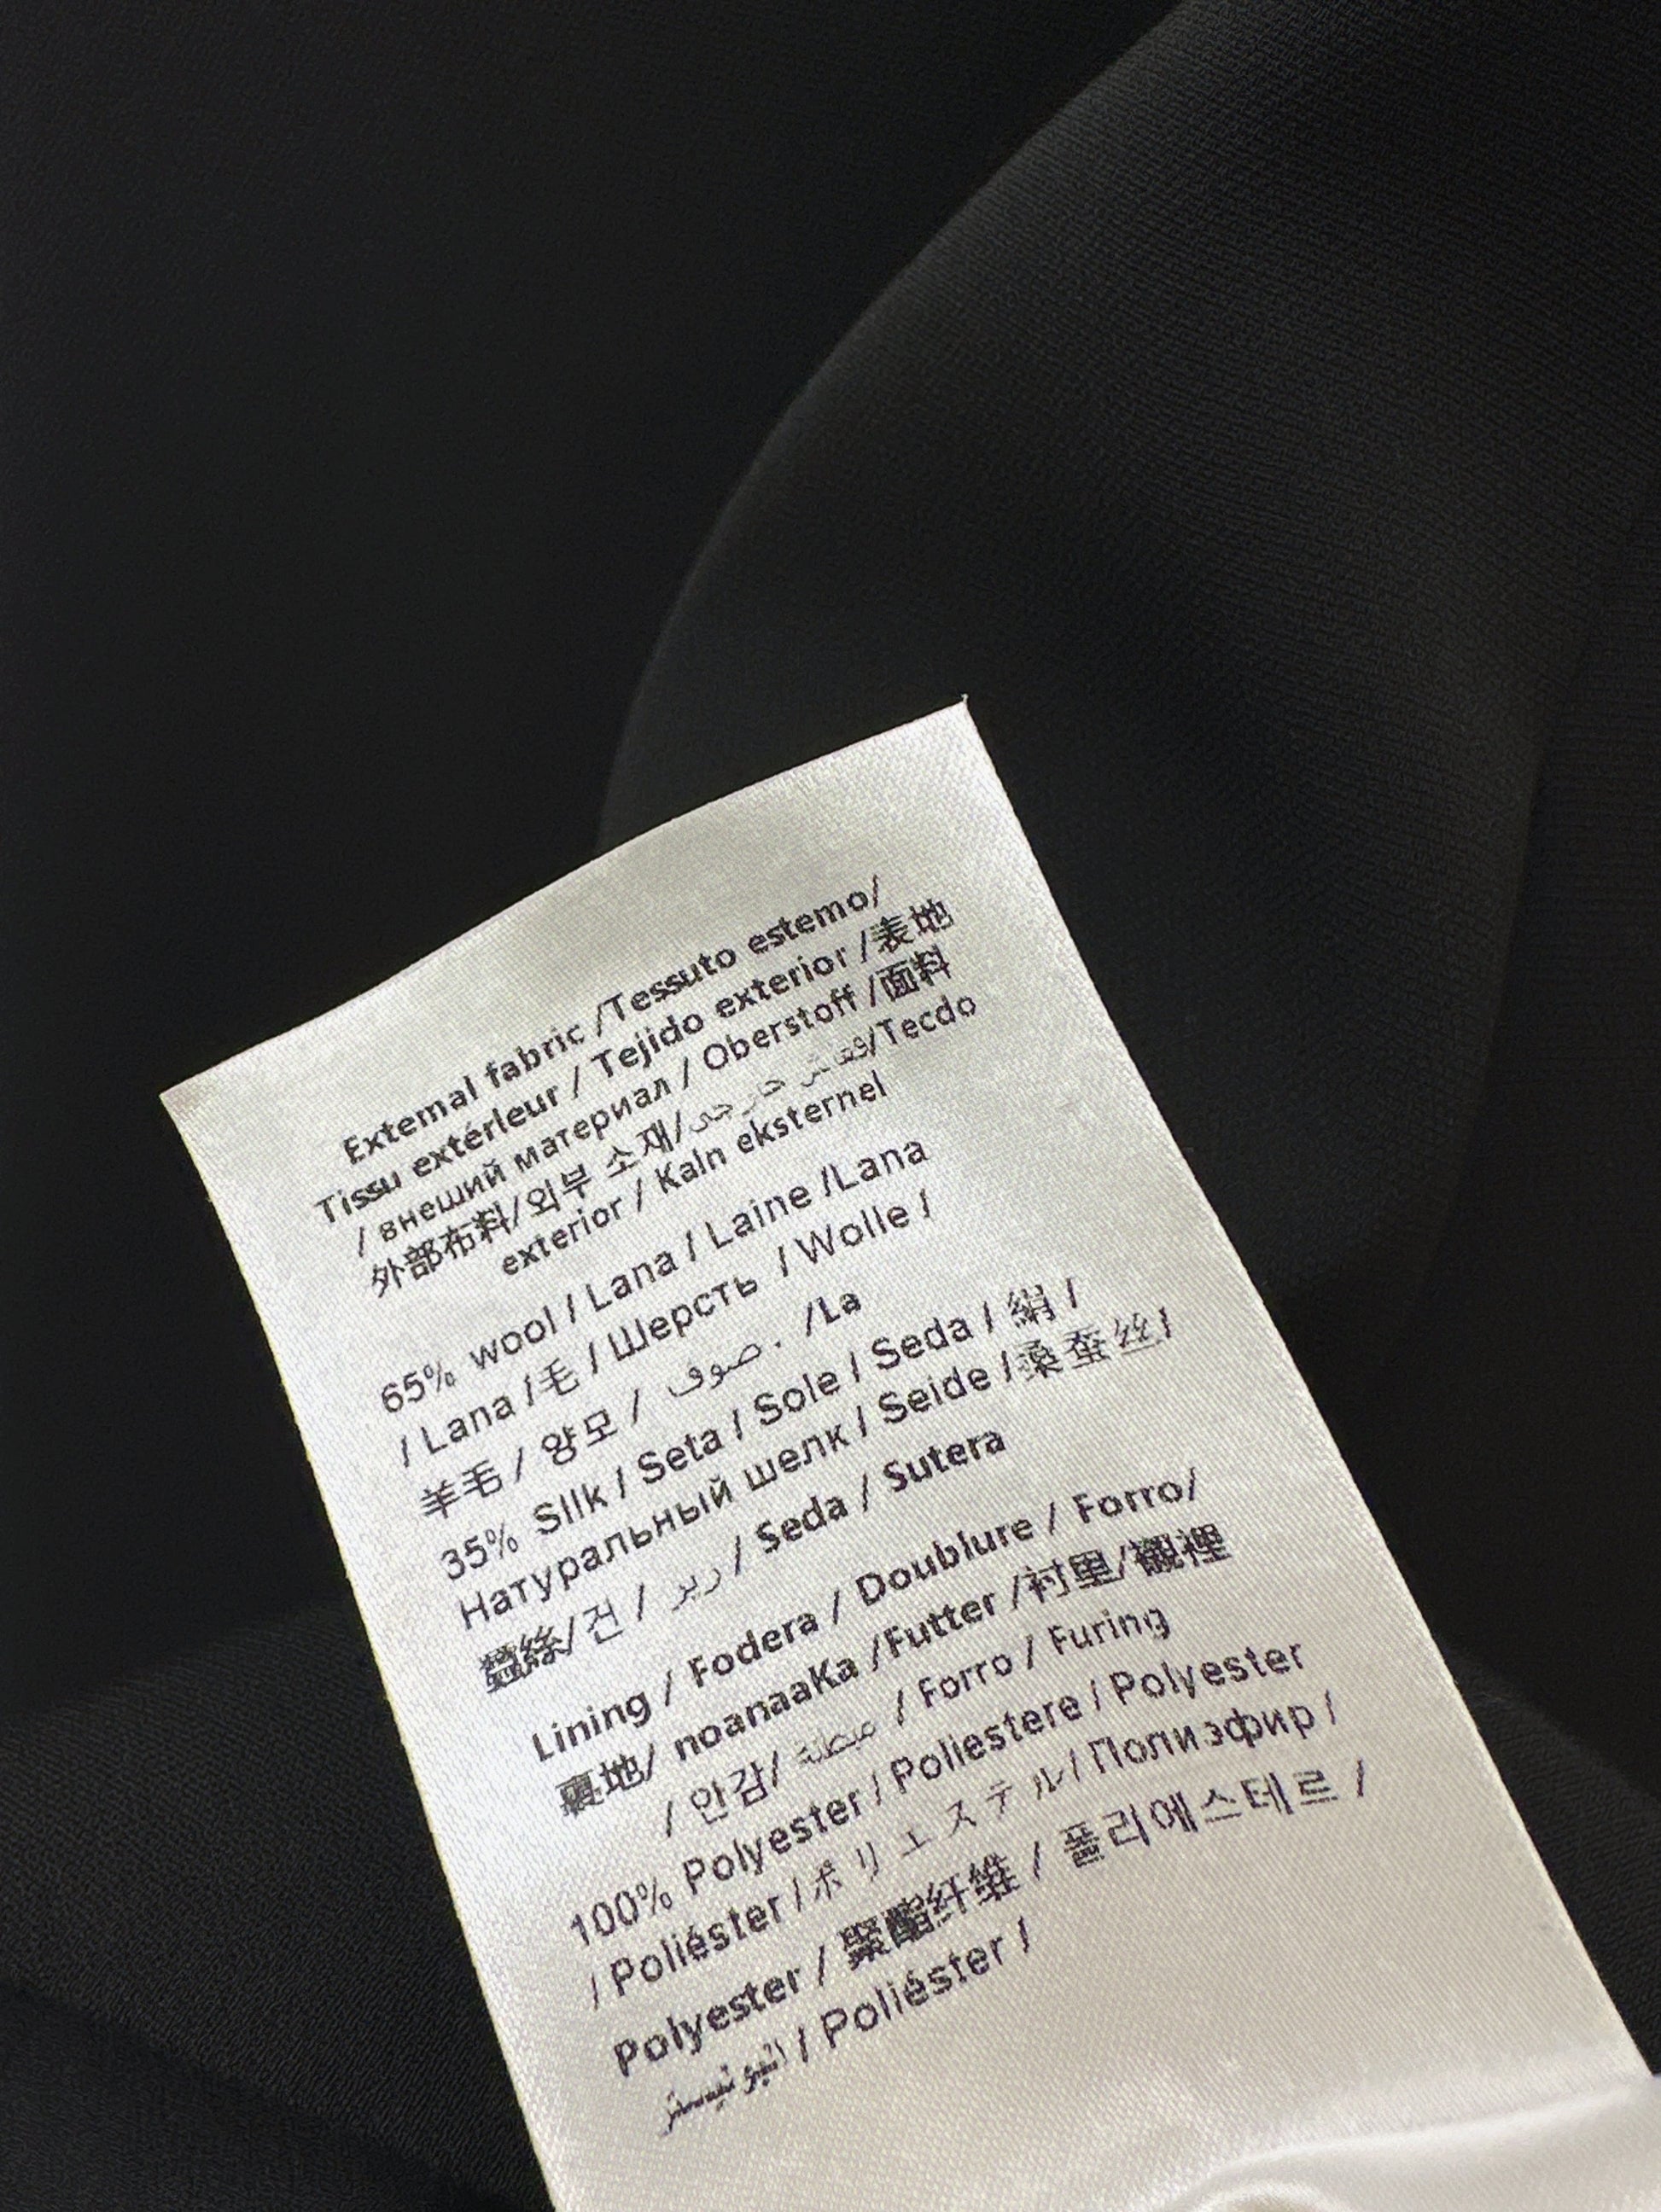 Extemal fabric /Tessuto estemo/
Tissu extérleur / Tejido exterior /表地
/ внеший материал / Oberstoff /面料
外部布料/외부 소재/ خارجى /Tecdo
exterior / Kaln eksternel
65% wool / Lana / Laine /Lana
/ Lana /毛 / Шерсть / Wolle /
羊毛 / 양모 / صوف . /La
35% SIlk / Seta / Sole / Seda / 絹 /
Натуральный шелк / Seide /桑蚕丝/
蠶絲/건 / / Seda / Sutera
Lining / Fodera / Doublure / Forro/
裏地/ noanaaKa /Futter /衬里/襯裡
/ 안감/ مبطنة / Forro / Furing
100% Polyester / Poliestere / Polyester
/ Poliéster /ポリエステル/ Полиэфир /
Polyester / 聚酯纤维 / 폴리에스테르 /
/ Poliéster /